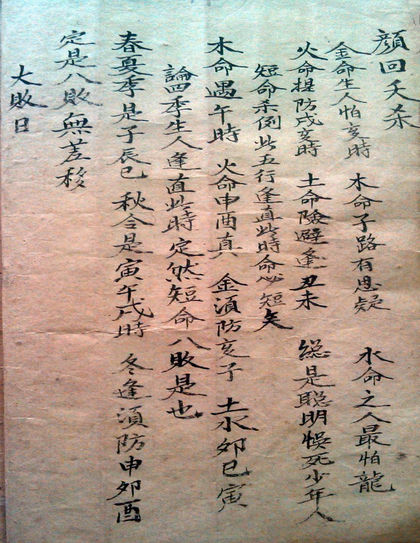 顔回夭杀
金命生人怕亥時 木命子路有思疑 水命之人最怕龍
火命提防戌亥時 土命險避逢丑未 總是聰明悮死少年人
短命杀倒此五行逢直此時命必短矣
木命遇午時 火命申酉真 金須防亥子 土水夘巳寅
論四季生人逢直此時定然短命八敗是也
春夏季是子辰巳 秋令是寅午戌時 冬逢須防申夘酉
定是八敗無差移
大敗日